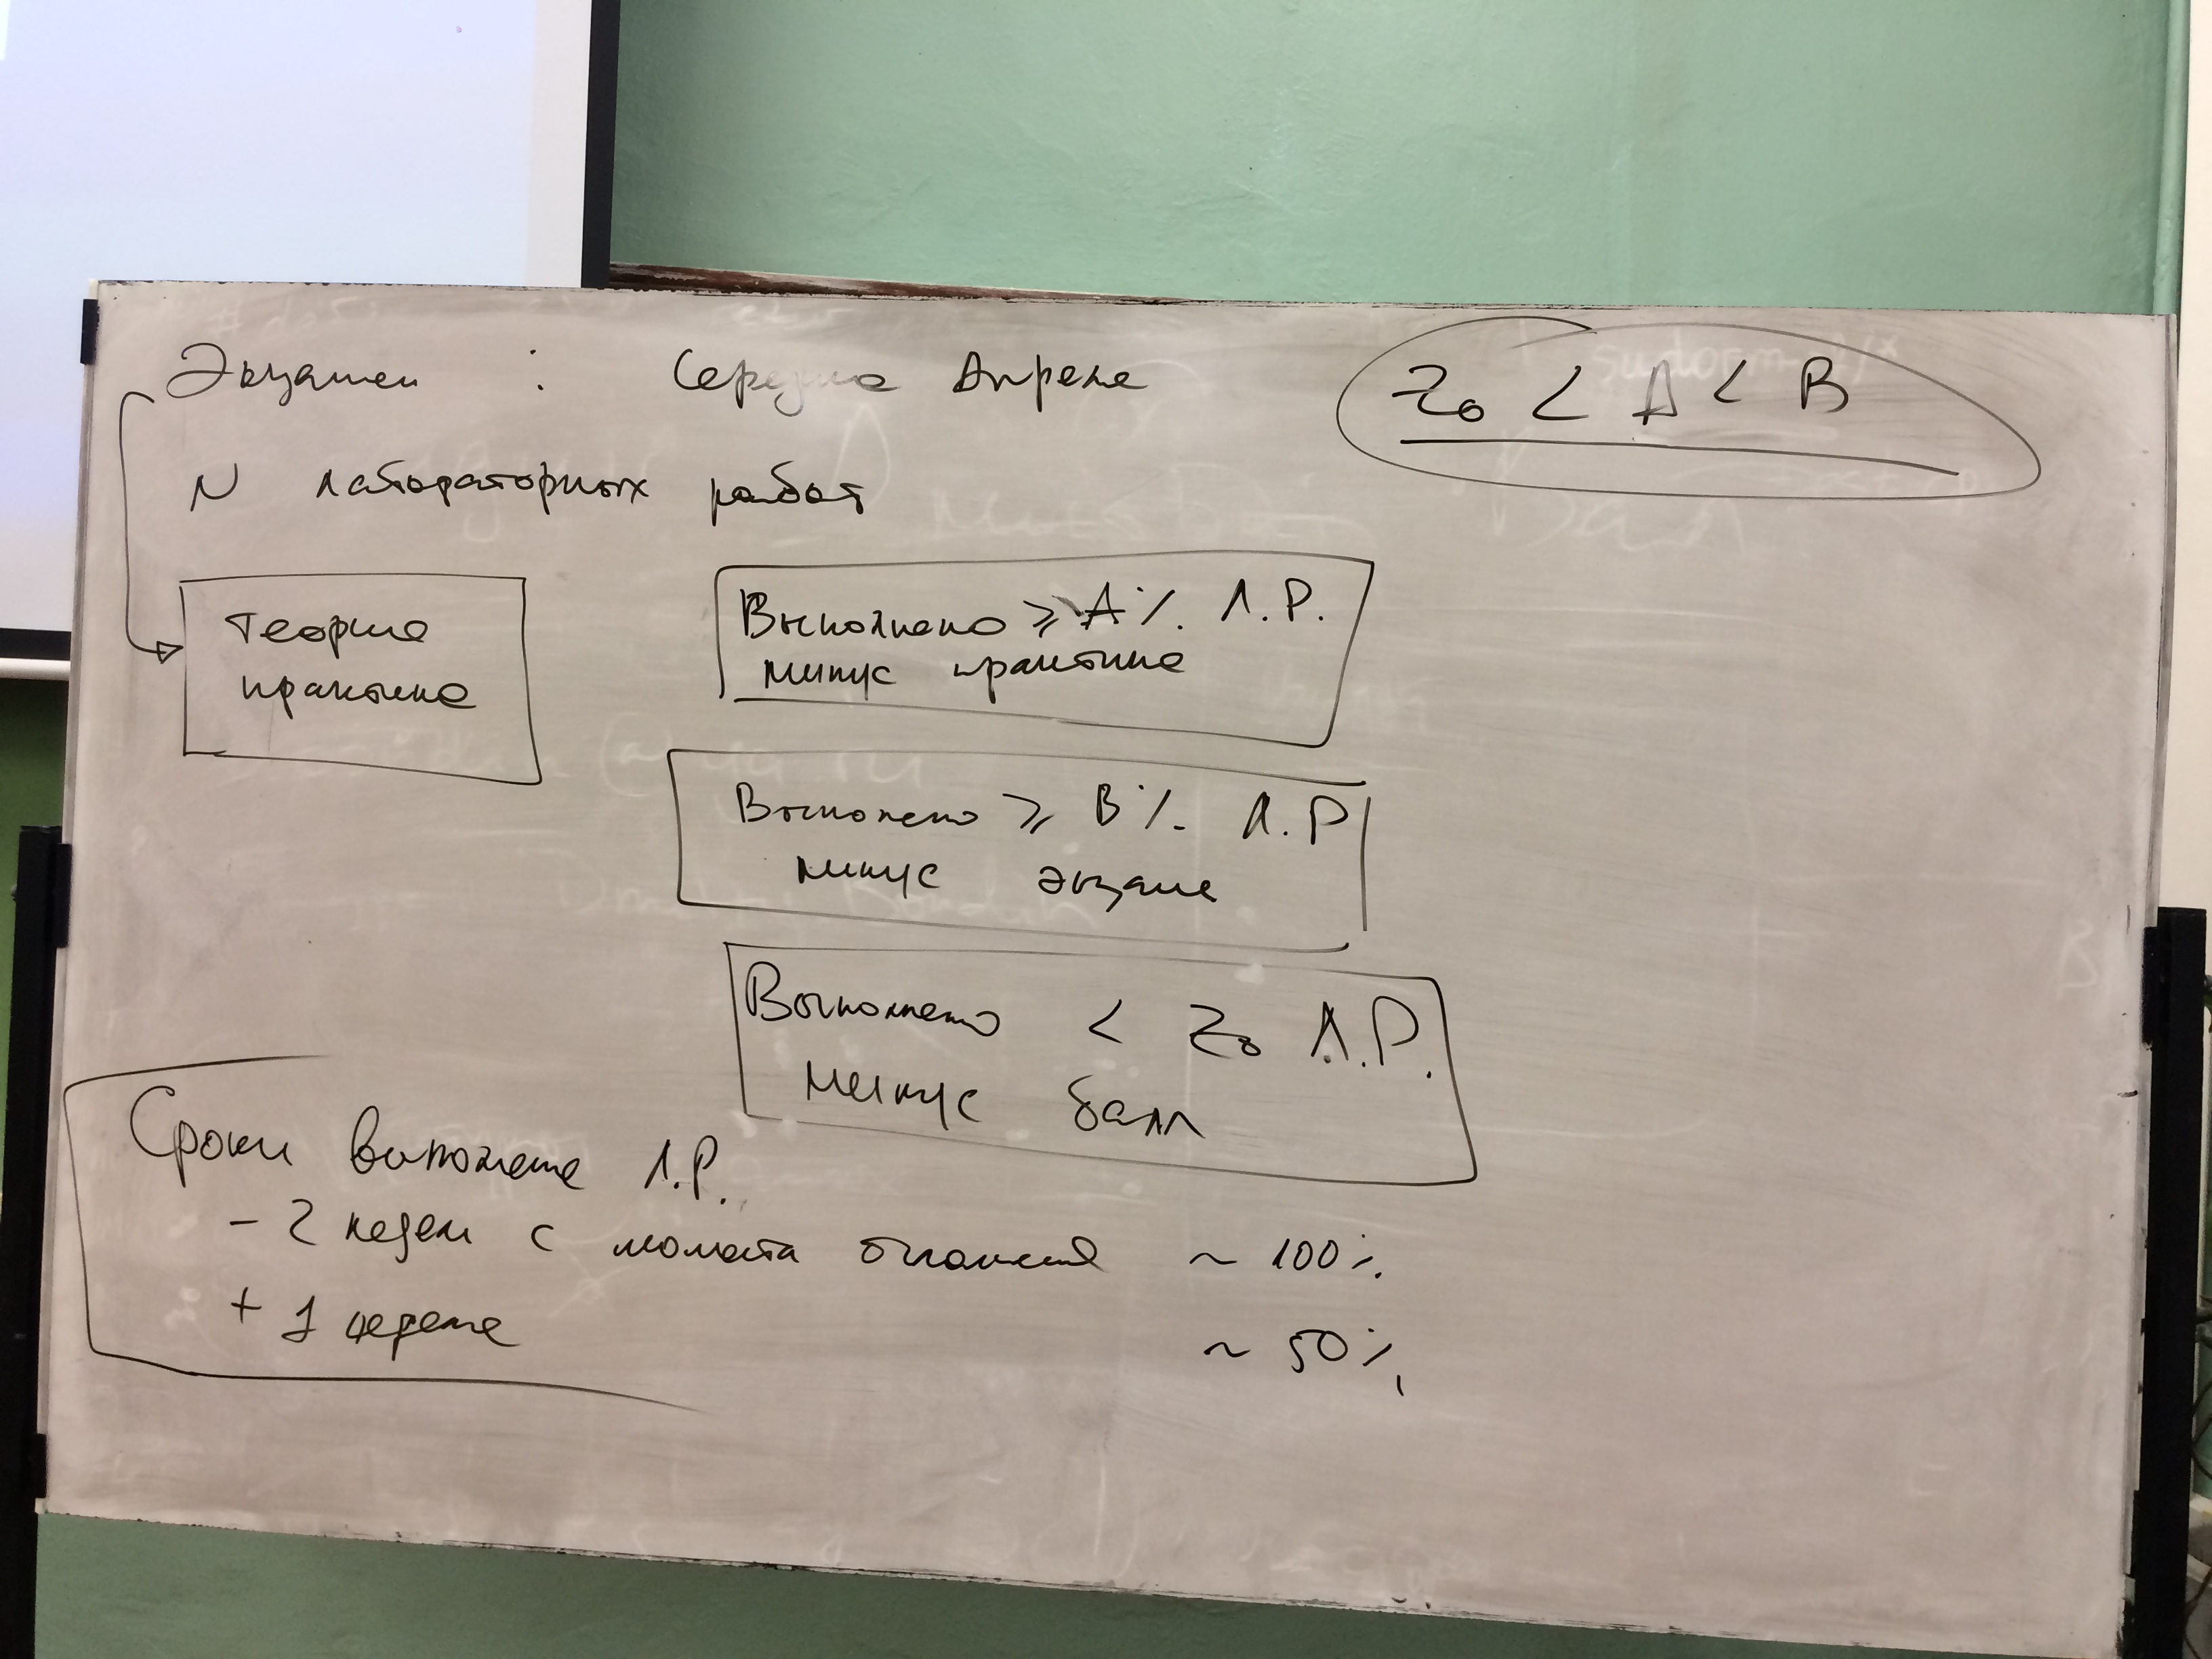 Экзамен : Середина Апреля
Z₀ < A < B
N лабораторных работ
Теория
практика
Выполнено ≥ A% Л.Р.
минус практика
Выполнено ≥ B% Л.Р
минус экзамен
Выполнено < Z₀ Л.Р.
минус балл
Сроки выполнения Л.Р.
- 2 недели с момента
~ 100%
+ 1 неделя ~ 50%